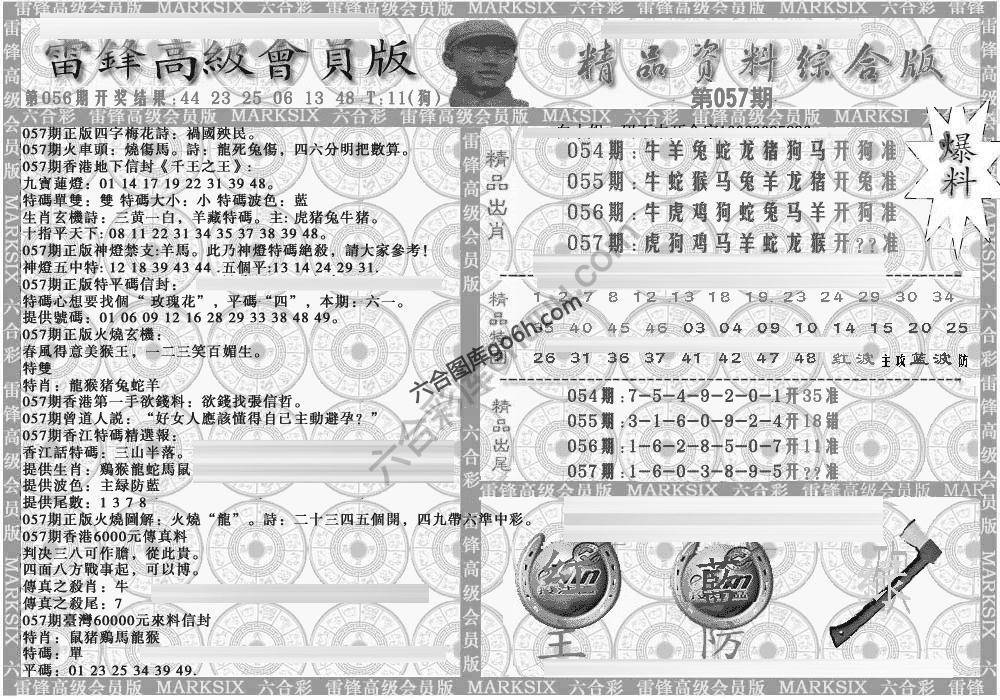 雷锋高级会员版 MARKSIX 六合彩 雷锋高级会员版 MARKSIX 六合彩 雷锋高级会员版 MARKSIX 六合彩
雷鋒高級會員版
第056期开奖结果:44 23 25 06 13 48-T:11(狗)
精品资料综合版
第057期
爆料
雷锋高级会员版 MARKSIX 六合彩 雷锋高级会员版 MARKSIX 六合彩 雷锋高级会员版 MARKSI
057期正版四字梅花詩：禍國殃民。
057期火車頭：燒傷馬。詩：龍死兔傷，四六分明把數算。
057期香港地下信封《千王之王》:
九寶蓮燈：01 14 17 19 22 31 39 48。
特碼單雙：雙 特碼大小：小 特碼波色：藍
生肖玄機詩：三黄一白，羊藏特碼。主:虎猪兔牛猪。
十指平天下:08 11 22 31 34 35 37 38 39 48。
057期正版神燈禁支:羊馬。此乃神燈特碼絶殺，請大家參考!
神燈五中特:12 18 39 43 44 .五個平:13 14 24 29 31.
057期正版特平碼信封：
特碼心想要找個“玫瑰花”，平碼“四”，本期：六一。
提供號碼：01 06 09 12 16 28 29 33 38 48 49。
057期正版火燒玄機：
春風得意美猴王，一二三笑百媚生。
特雙
特肖：龍猴猪兔蛇羊
057期香港第一手欲錢料：欲錢找張信哲。
057期曾道人説：“好女人應該懂得自已主動避孕？”
057期香江特碼精選報：
香江話特碼：三山半落。
提供生肖：鷄猴龍蛇馬鼠
提供波色：主緑防藍
提供尾數：1 3 7 8
057期正版火燒圖解：火燒“龍”。詩：二十三四五個開，四九帶六準中彩。
057期香港6000元傳真料
判决三八可作膽，從此貴。
四面八方戰事起，可以博。
傳真之殺肖：牛
傳真之殺尾：7
057期臺灣60000元來料信封
特肖：鼠猪鷄馬龍猴
特碼：單
平碼：01 23 25 34 39 49.
精品出肖
054期:牛羊兔蛇龙猪狗马开狗准
055期:牛蛇猴马兔羊龙猪开兔准
056期:牛虎鸡狗蛇兔马羊开狗准
057期:虎狗鸡马羊蛇龙猴开??准
精品特
1 2 7 8 12 13 18 19 23 24 29 30 34
35 40 45 46 03 04 09 10 14 15 20 25
26 31 36 37 41 42 47 48 红波 主攻 蓝波 防
精品出尾
054期:7-5-4-9-2-0-1开35准
055期:3-1-6-0-9-2-4开18错
056期:1-6-2-8-5-0-7开11准
057期:1-6-0-3-8-9-5开??准
雷锋高级会员版 MARKSIX 六合彩 雷锋高级会员版 MAR
六合图库906h.com
紅
主
藍
防
砍
雷锋高级会员版 MARKSIX 六合彩 雷锋高级会员版 MARKSIX 六合彩 雷锋高级会员版 MARKSIX 六合彩